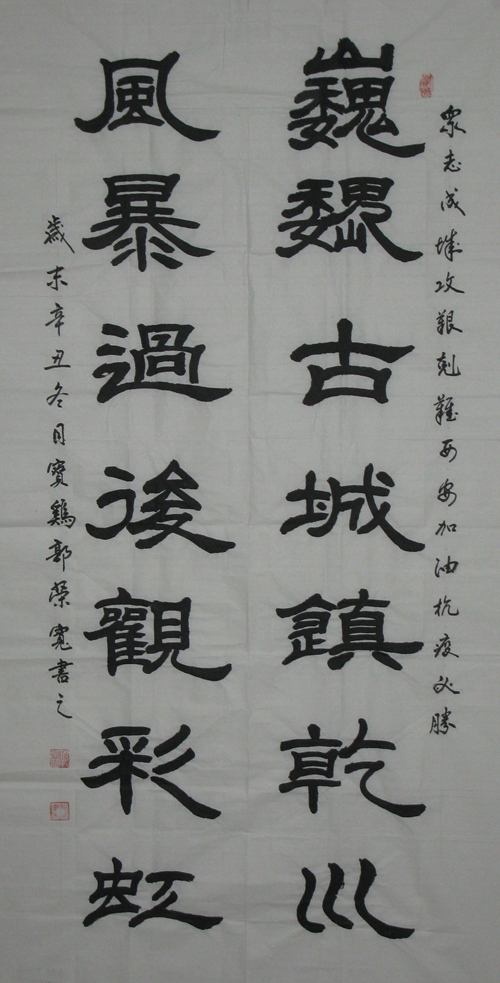 眾志成城攻艱剋難西安加油抗疫必勝
巍巍古城鎮乾川
風暴過後觀彩虹
歲末辛丑冬月寶鷄郭榮寬書之